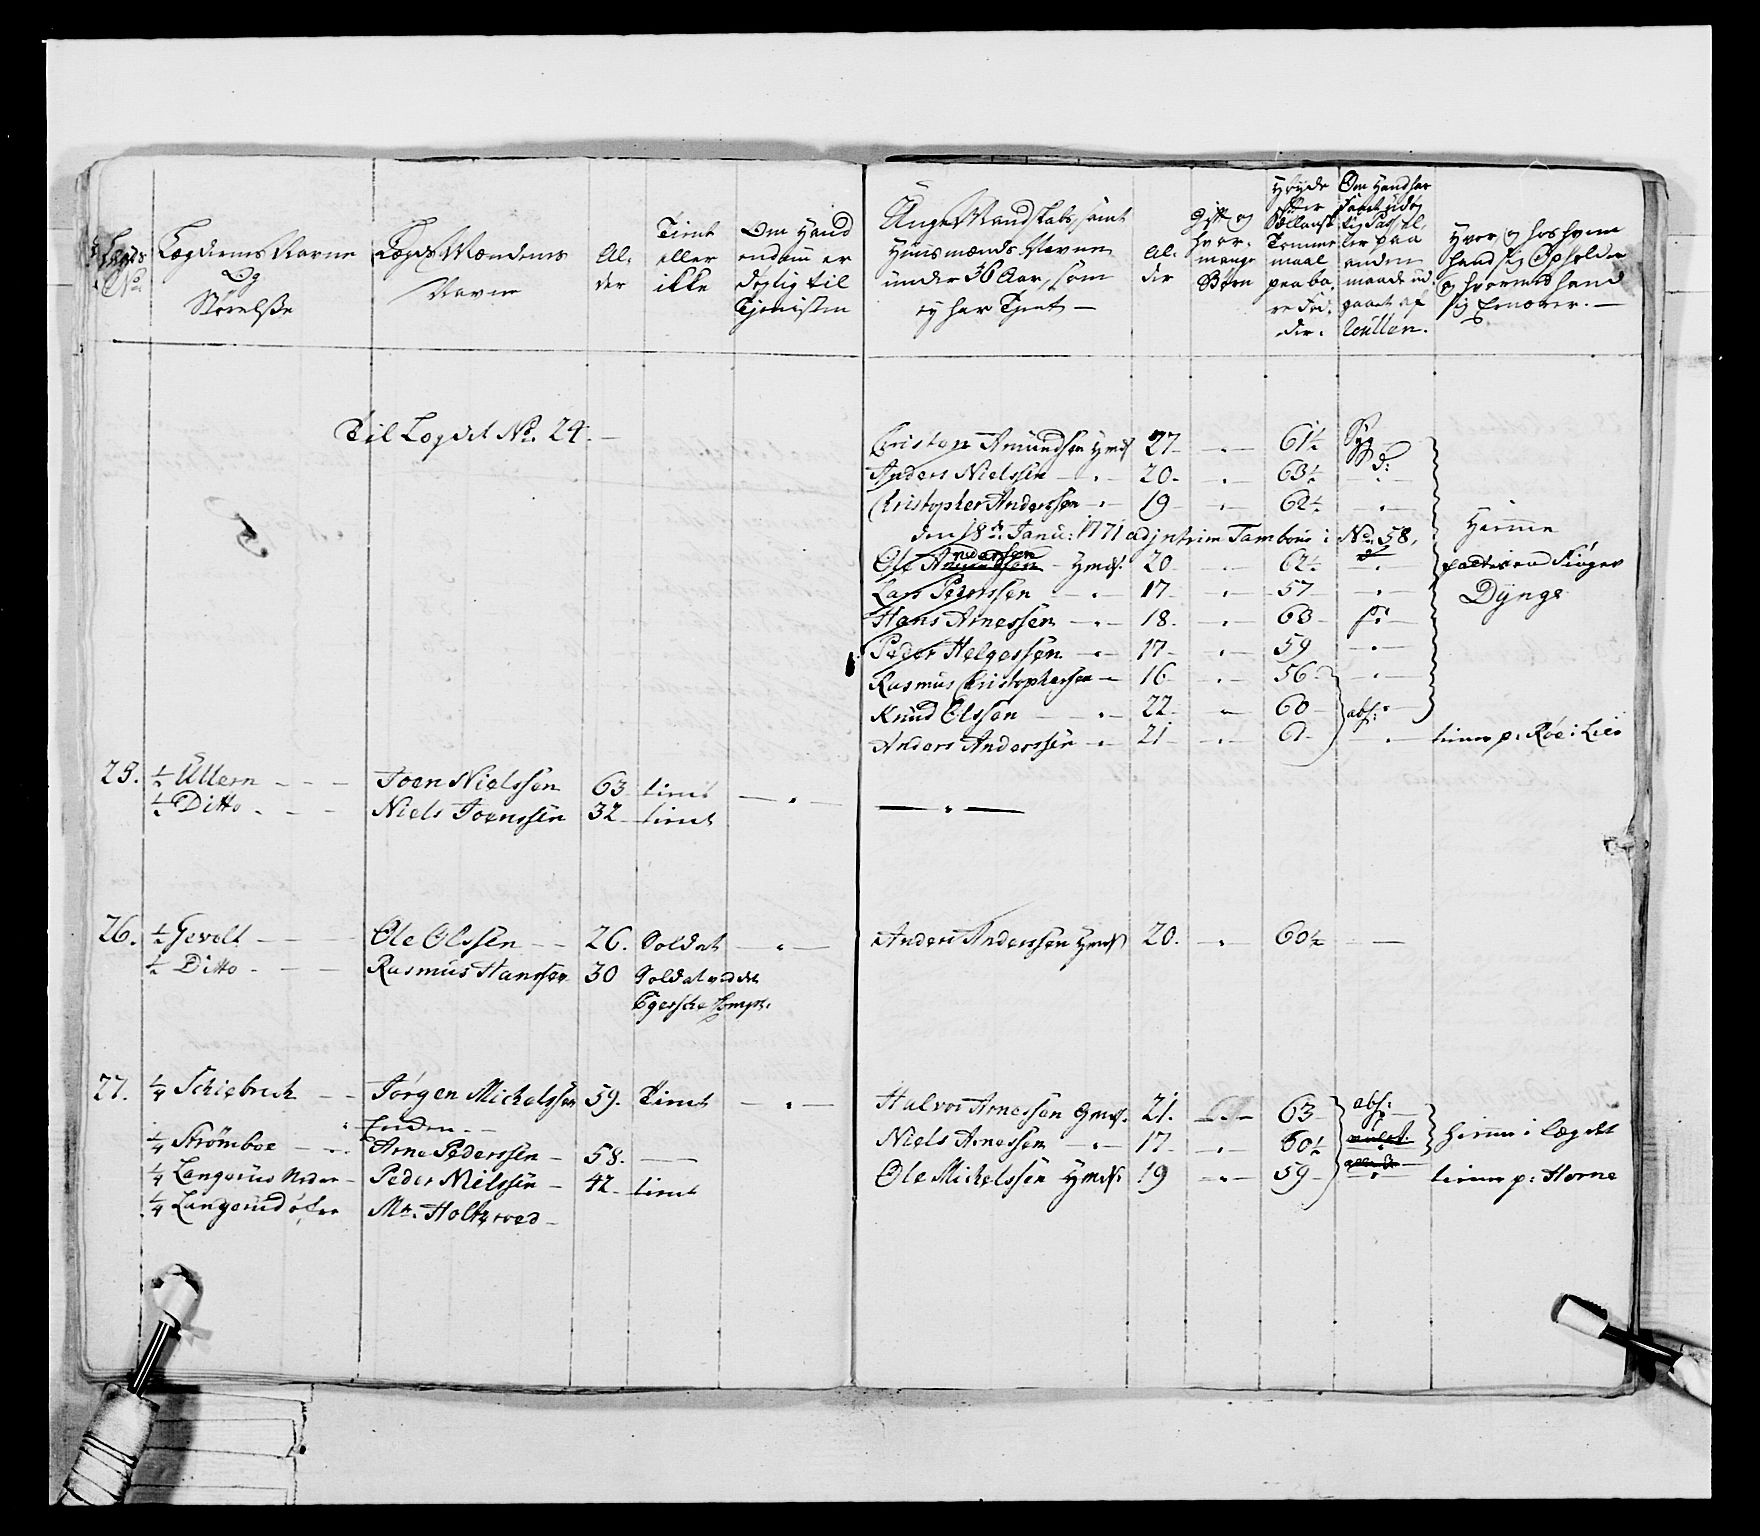 Lægds No.
Lægdens Navne
Og
Størelsse
Lægds Mændenes
Navne
Al-
der
Tient
eller
ikke
Om Hand
endnu er
dygtig til
Tienisten
Unge Mandskabs, samt
Huusmænds Navne
under 36 Aar, som
ej har Tient —
Al-
der
Gift og
hvor-
mange
Børn
Høyde
efter
Sællandsk
Tomme
maal
paa ba-
re Fød-
der.
Om Hand har
Pas el-
ler paa
anden
maade ud-
gaaet af
Roullen.
Hvor og hos hvem
hand sig Opholder
og hvormed hand
sig Ernærer. —
Til Legdet No. 24. —
Cristen Amundsen Hmds 27 — 61½ Syg
Anders Nielssen — 20 — 63½ D:
Christopher Anderssen — 19 — 62½
den 18de Janu: 1771 ad interim Tambour i No. 58.
Ole Amundsen Andersen — Hmds: 20 — 62½
Lars Pederssen — 17 — 57
Hans Arnessen — 18 — 63
Peder Helgessen — 17 — 59
Rasmus Christophersen — 16 — 56
Knud Olssen — 22 — 60 abs:
Anders Anderssen — 21 — 61 tiener p: Røe i Lier
Hiemme
Dynge
25. ½ Ullern — Joen Nielssen 63 tient
½ Ditto — Niels Joenssen 32 tient
26. ½ Gevelt — Ole Olssen — 26. Soldat — Anders Anderssen Hmds 20. — 60½
½ Ditto — Rasmus Hanssen 30 Soldat ved det
Egerske Comp:
27. ¼ Schiebrech — Jørgen Michelssen 59. Tient — Halvor Arnessen Gmds. 21. — 63 abs:
Enden —
¼ Strømboe — Arne Pederssen — 58. — Niels Arnessen — 17 — 60½ hiemme i Lægdet
¼ Langerud Neder — Peder Nielssen — 42 tient Ole Michelssen Hmds: 19 — 59 tiener p: Horne
¼ Langerud øfre Mr. Holtzwed —